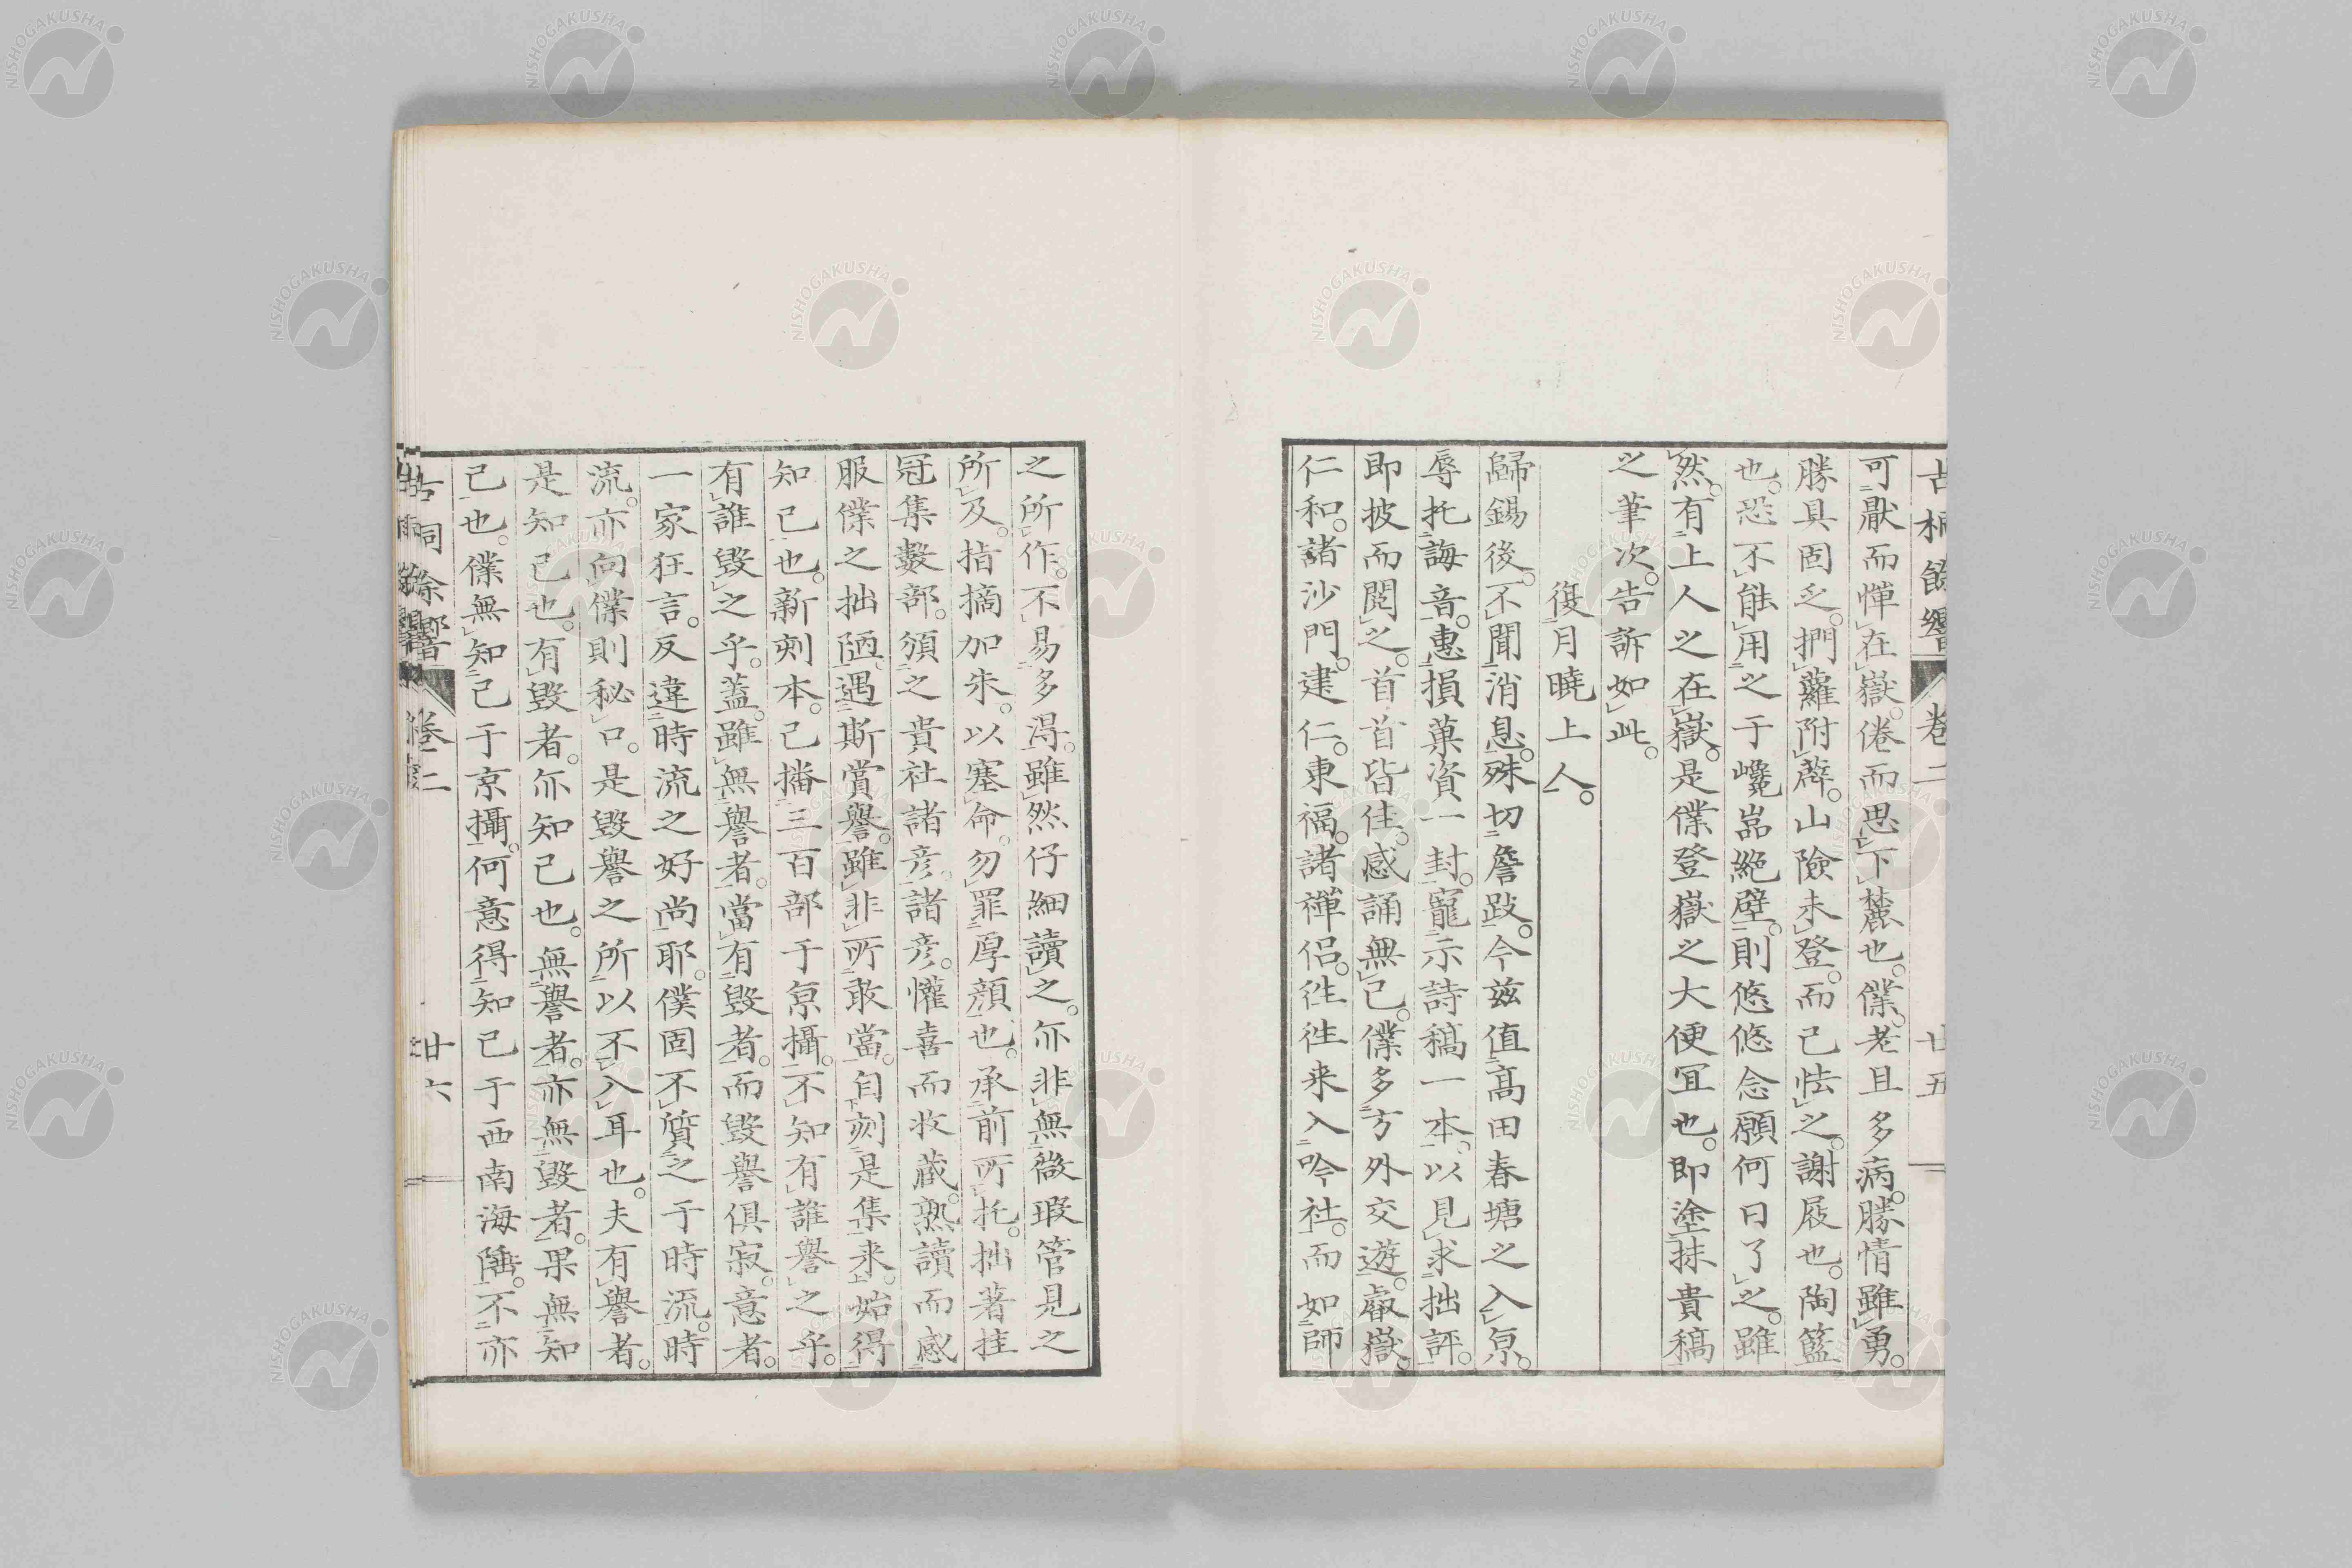 古桐餘響 卷二 廿五
可厭而憚在嶽。倦而思下麓也。僕老且多病。勝情雖勇。
勝具固乏。捫蘿附薜。山險未登。而已怯之。謝屐也。陶籃
也。恐不能用之于巉嵓絕壁。則悠悠念願何日了之。雖
然。有上人之在嶽。是僕登嶽之大便宜也。即塗抹貴稿
之筆次。告訴如此。
復月曉上人。
歸錫後。不聞消息。殊切詹跂。今兹值高田春塘之入京。
辱托誨音。惠損菓資一封。寵示詩稿一本。以見求拙評。
即披而閱之。首首皆佳。感誦無已。僕多方外交遊。叡嶽。
仁和。諸沙門。建仁。東福。諸禅侶。徃徃来入吟社。而如師
之所作。不易多淂。雖然仔細讀之。亦非無微瑕管見之
所及。指摘加朱。以塞命。勿罪厚顔也。承前所托。拙著挂
冠集數部。頒之貴社諸彦。諸彦。懽喜而收蔵。熟讀而感
服僕之拙陋。遇斯賞譽。雖非所敢當。自刻是集来。始得
知己也。新刻本。已播三百部于京攝。不知有誰譽之乎。
有誰毀之乎。蓋雖無譽者。當有毀者。而毀譽俱寂。意者。
一家狂言。反違時流之好尚耶。僕固不質之于時流。時
流。亦向僕則秘口。是毀譽之所以不入耳也。夫有譽者。
是知己也。有毀者。亦知己也。無譽者。亦無毀者。果無知
己也。僕無知己于京攝。何意得知己于西南海陲。不亦
古桐餘響 卷二 廿六